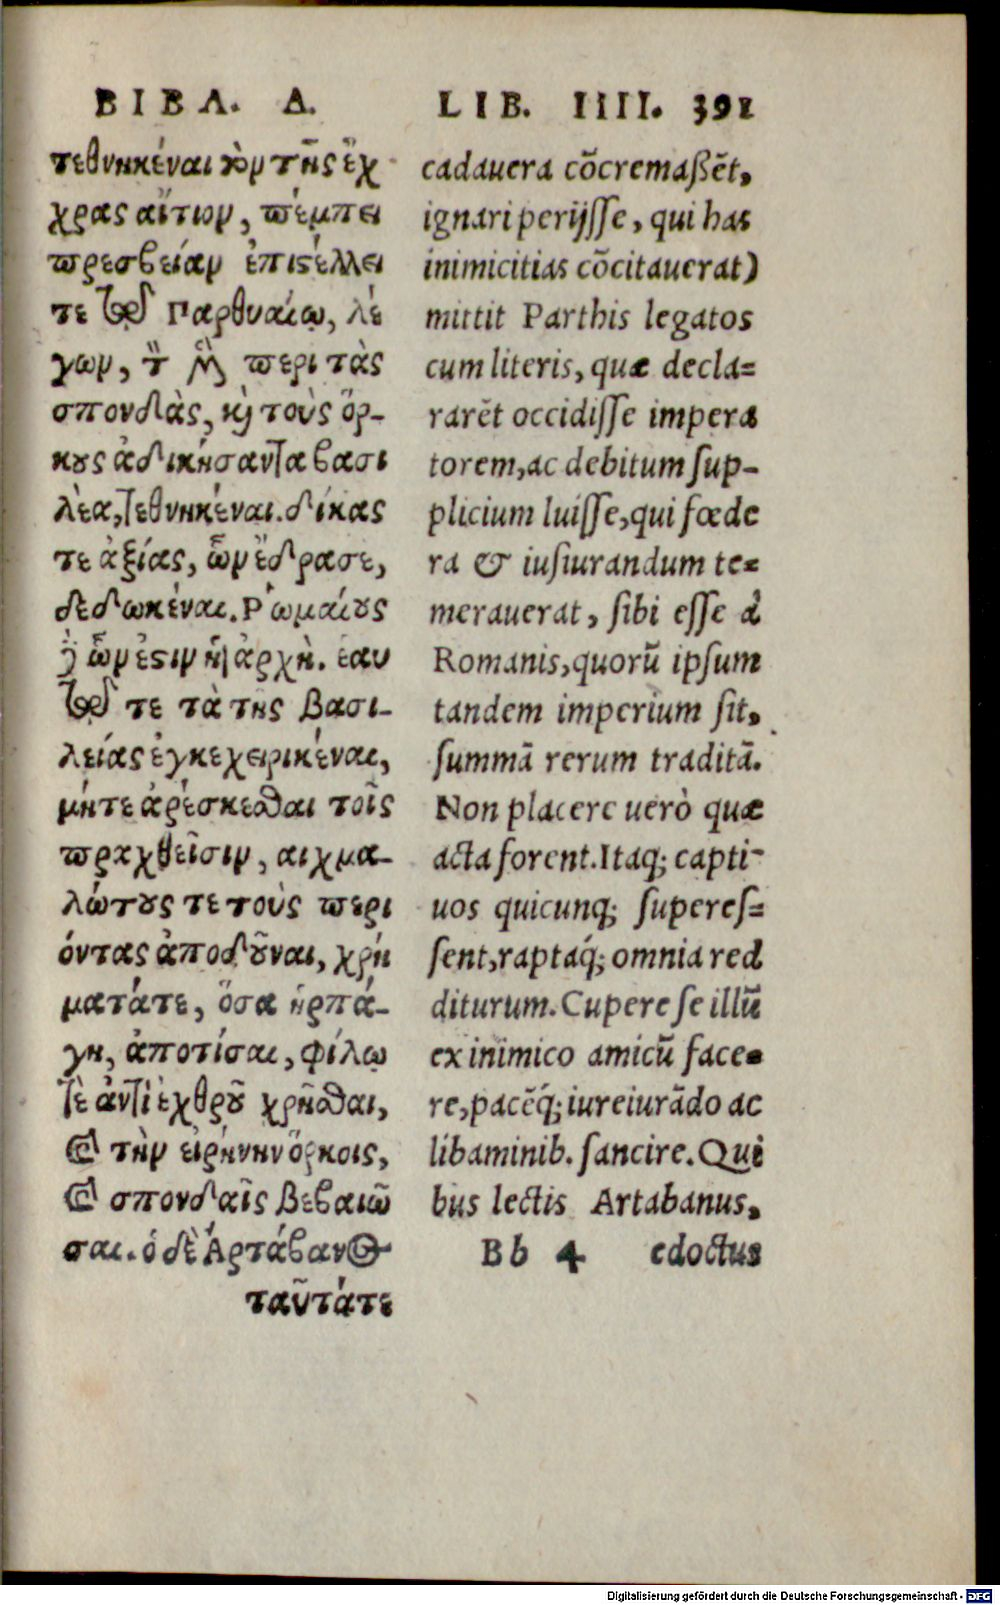 ΒΙΒΛ. Δ.
τεθνηκέναι τὸν τῆς ἔχ
χρας αἴτιον, πέμπει
πρεσβείαν ἐπιστέλλει
τε τῷ Παρθυαίῳ, λέ
γων, τ μ περι τὰς
σπονδὰς, κὶ τοὺς ὅρ-
κους ἀδικήσαντα βασι
λέα, τεθνηκέναι. δίκας
τε ἀξίας, ὧν ἔδρασε,
δεδωκέναι. Ῥωμαίους
ὧν ἐστιν ἡ ἀρχὴ. ἑαυ
τῷ τε τὰ τῆς βασι-
λείας ἐγκεχειρικέναι,
μήτε ἀρέσκεσθαι τοῖς
πραχθεῖσιν, αιχμα-
λώτους τε τοὺς περι
όντας ἀποδοῦναι, χρή
ματάτε, ὅσα ἡρπά-
γη, ἀποτίσαι, φίλῳ
τὲ ἀντὶ ἐχθροῦ χρῆσθαι,
καὶ τὴν εἰρήνην ὅρκοις,
καὶ σπονδαῖς βεβαιῶ
σαι. ὁ δὲ Ἀρτάβανος
ταῦτάτε
LIB. IIII. 391
cadauera cõcremaßẽt,
ignari perijſſe, qui has
inimicitias cõcitauerat)
mittit Parthis legatos
cum literis, quæ decla=
rarẽt occidiſſe impera
torem, ac debitum ſup-
plicium luiſſe, qui fœde
ra & iuſiurandum te=
merauerat, ſibi eſſe à
Romanis, quorũ ipſum
tandem imperium ſit,
ſummã rerum traditã.
Non placere uerò quæ
acta forent. Itaq; capti-
uos quicunq; ſupereſ=
ſent, raptaq́; omnia red
diturum. Cupere ſe illũ
ex inimico amicũ face=
re, pacẽq́; iureiurãdo ac
libaminib. ſancire. Qui
bus lectis Artabanus,
Bb 4 edoctus
Digitalisierung gefördert durch die Deutsche Forschungsgemeinschaft - DFG